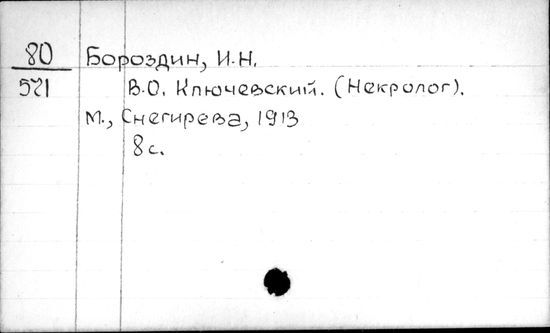 80 Бороздин, И.Н.
521 В.О. Ключевский. (Некролог).
М., Снегирева, 1913
8 с.